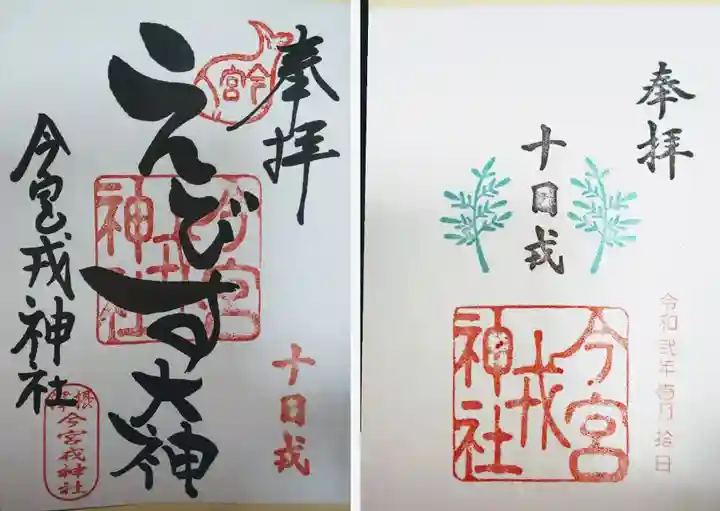 奉拝
今宮
えびす大神
今宮戎神社
十日戎
今宮戎神社
今宮戎神社
奉拝
十日戎
今宮戎神社
令和弐年壱月拾日